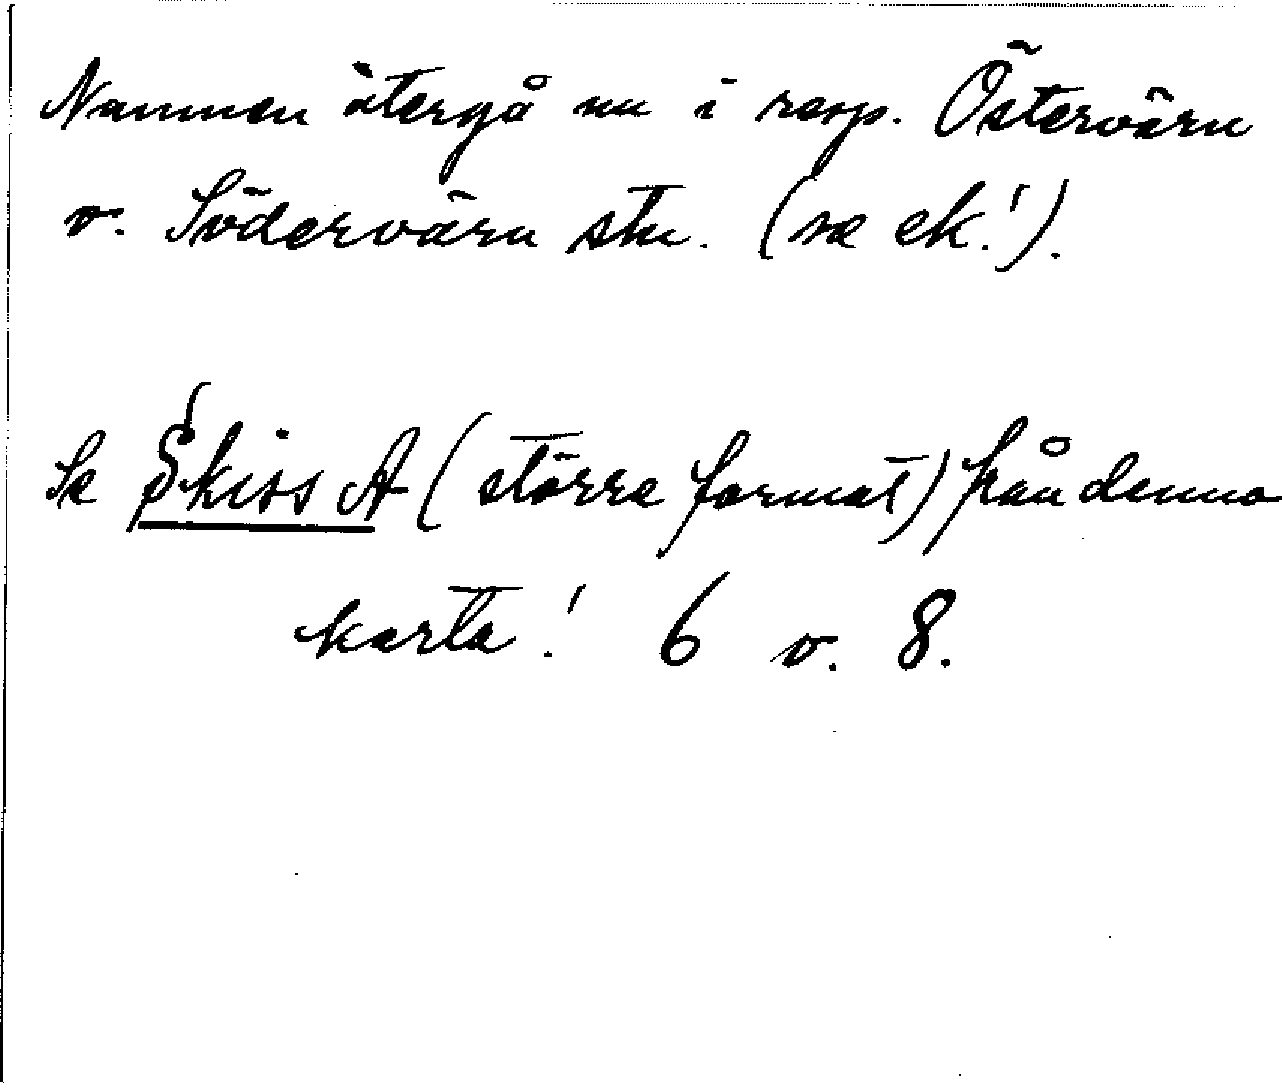 Namnen återgå nu i resp. Östervärn
o. Södervärn stn. (se ek.!).
Se Skiss A (större format) från denna
karta! 6 o. 8.